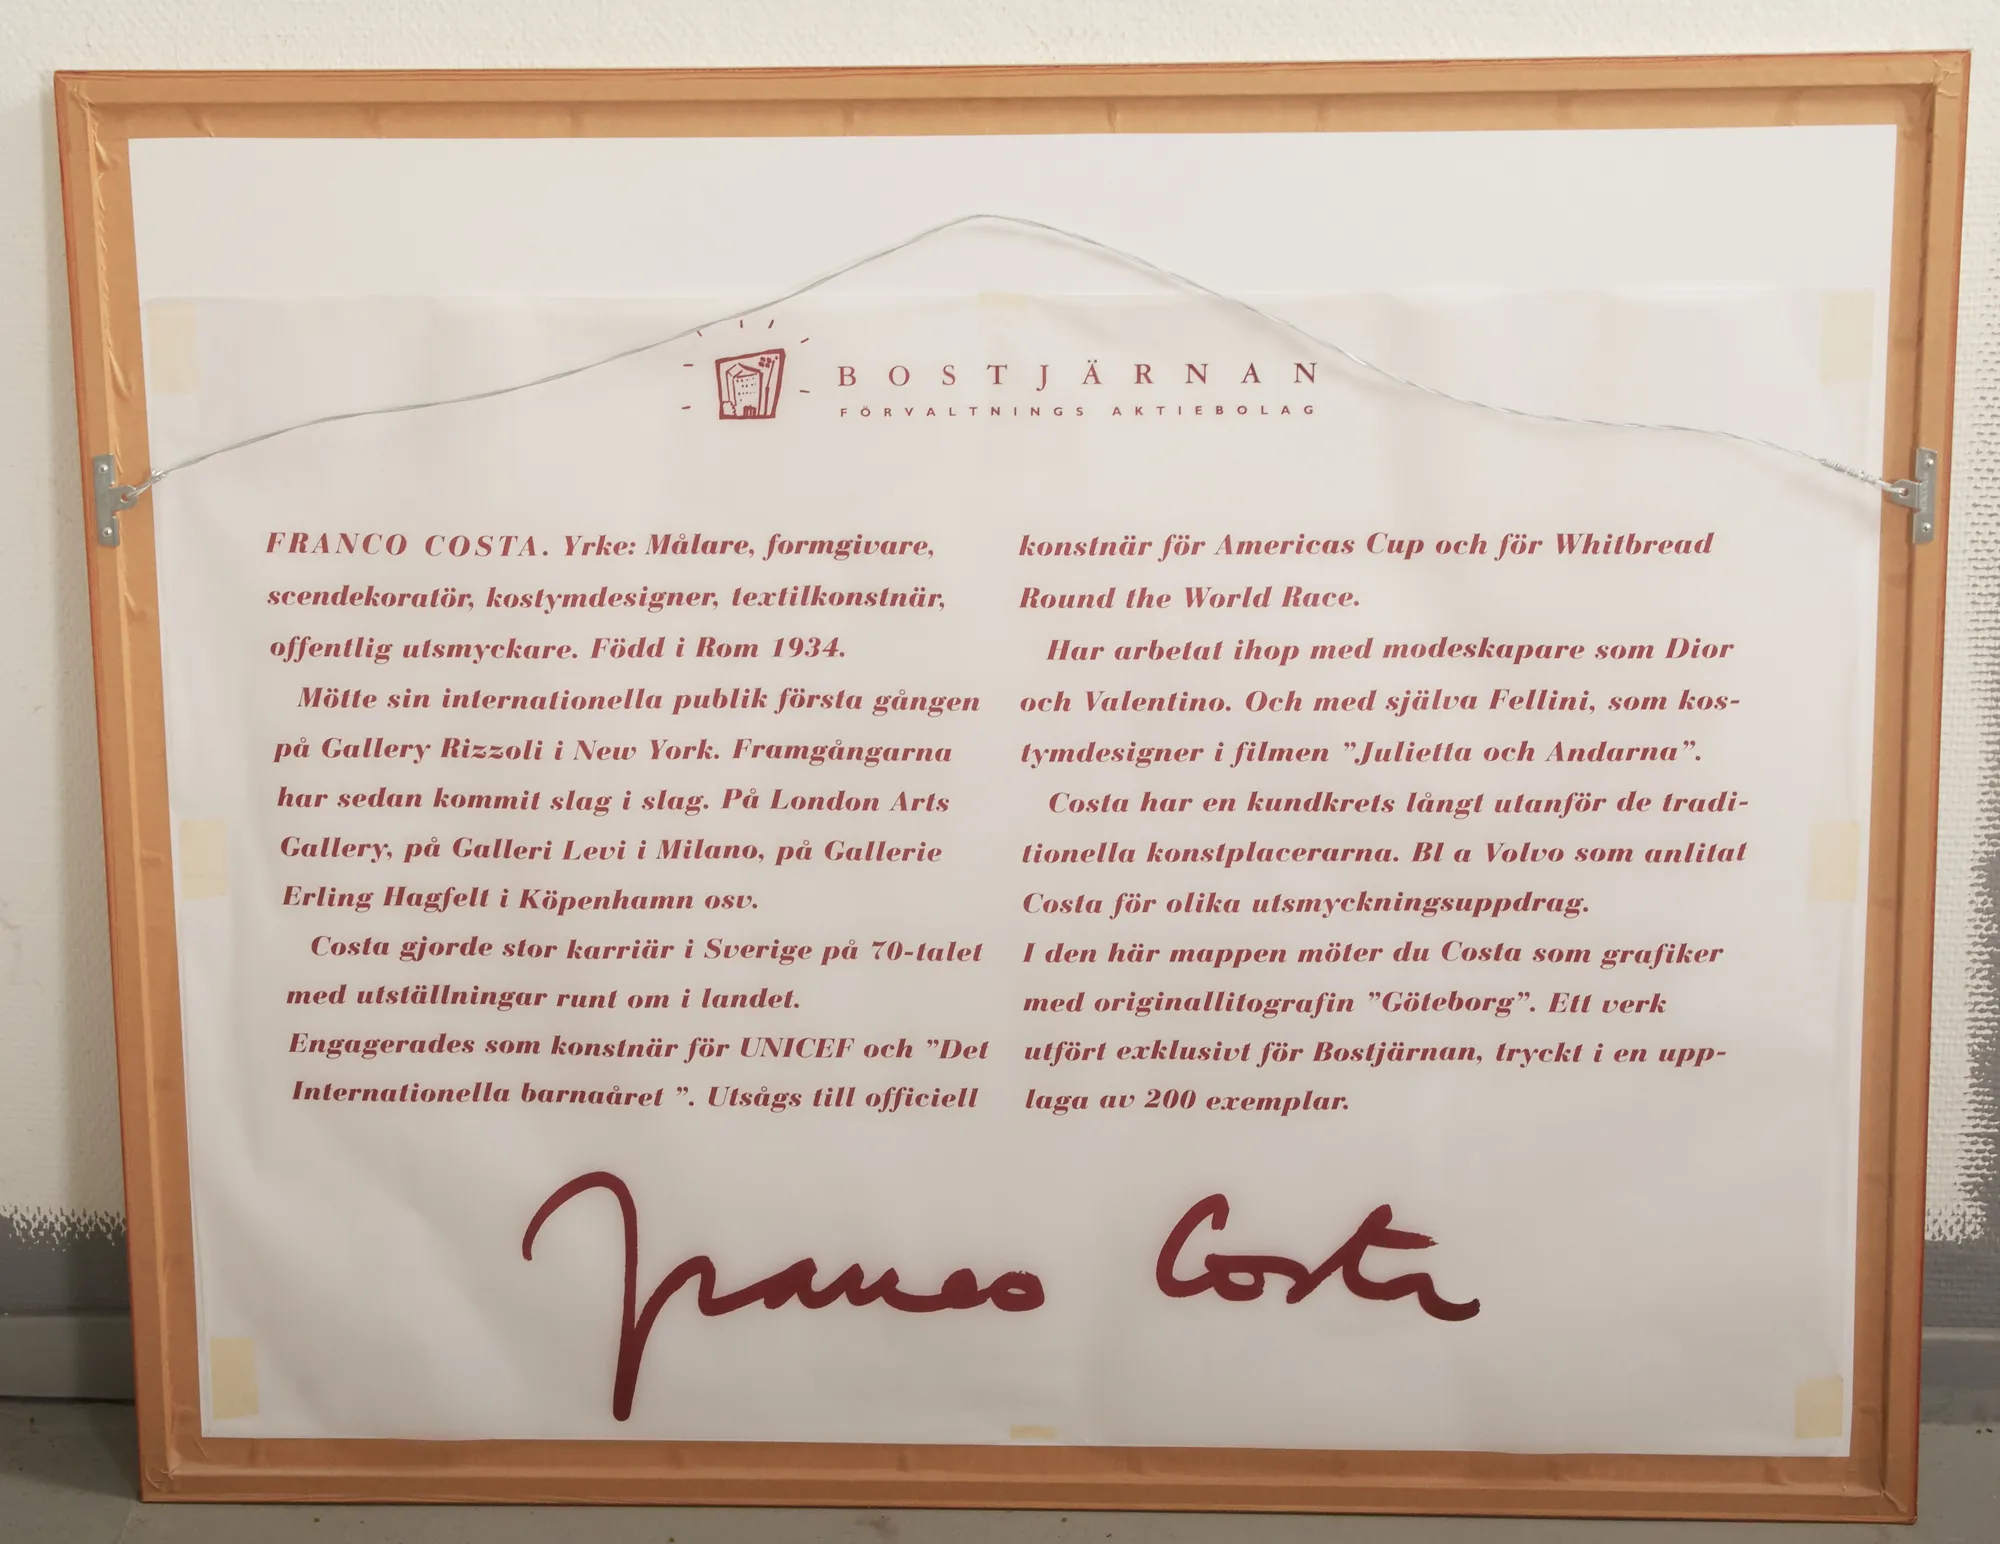 BOSTJÄRNAN
FÖRVALTNINGS AKTIEBOLAG
FRANCO COSTA. Yrke: Målare, formgivare,
scendekoratör, kostymdesigner, textilkonstnär,
offentlig utsmyckare. Född i Rom 1934.
Mötte sin internationella publik första gången
på Gallery Rizzoli i New York. Framgångarna
har sedan kommit slag i slag. På London Arts
Gallery, på Galleri Levi i Milano, på Gallerie
Erling Hagfelt i Köpenhamn osv.
Costa gjorde stor karriär i Sverige på 70-talet
med utställningar runt om i landet.
Engagerades som konstnär för UNICEF och ”Det
Internationella barnaåret ”. Utsågs till officiell
konstnär för Americas Cup och för Whitbread
Round the World Race.
Har arbetat ihop med modeskapare som Dior
och Valentino. Och med själva Fellini, som kos-
tymdesigner i filmen ”Julietta och Andarna”.
Costa har en kundkrets långt utanför de tradi-
tionella konstplacerarna. Bl a Volvo som anlitat
Costa för olika utsmyckningsuppdrag.
I den här mappen möter du Costa som grafiker
med originallitografin ”Göteborg”. Ett verk
utfört exklusivt för Bostjärnan, tryckt i en upp-
laga av 200 exemplar.
Franco Costa